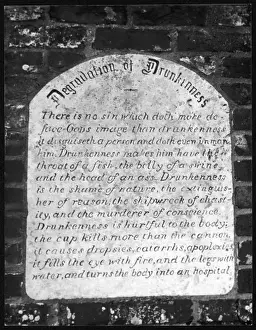 Degradation of Drunkinness
There is no sin which doth more de-
face Gods image than drunkenness
it disguiseth a person and doth even unman
him. Drunkenness makes him have the
throat of a fish, the belly of a swine,
and the head of an ass. Drunkenness
is the shame of nature, the extinguish-
er of reason, the shipwreck of chast-
ity, and the murderer of conscience.
Drunkenness is hurtful to the body;
the cup kills more than the cannon,
it causes dropsies, catarrhs, apoplexies,
it fills the eye with fire, and the legs with
water, and turns the body into an hospital.